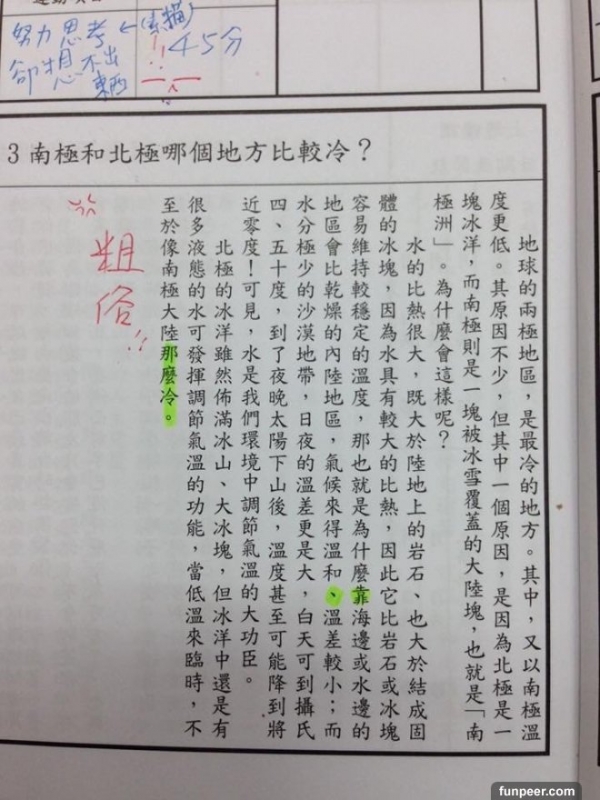 努力思考 ← (素描)
卻想不出
東西
!!
45分
3 南極和北極哪個地方比較冷？
地球的兩極地區，是最冷的地方。其中，又以南極溫
度更低。其原因不少，但其中一個原因，是因為北極是一
塊冰洋，而南極則是一塊被冰雪覆蓋的大陸塊，也就是「南
極洲」。為什麼會這樣呢？
水的比熱很大，既大於陸地上的岩石、也大於結成固
體的冰塊，因為水具有較大的比熱，因此它比岩石或冰塊
容易維持較穩定的溫度，那也就是為什麼靠海邊或水邊的
地區會比乾燥的內陸地區，氣候來得溫和、溫差較小；而
水分極少的沙漠地帶，日夜的溫差更是大，白天可到攝氏
四、五十度，到了夜晚太陽下山後，溫度甚至可能降到將
近零度！可見，水是我們環境中調節氣溫的大功臣。
北極的冰洋雖然佈滿冰山、大冰塊，但冰洋中還是有
很多液態的水可發揮調節氣溫的功能，當低溫來臨時，不
至於像南極大陸那麼冷。
粗俗!!
funpeer.com